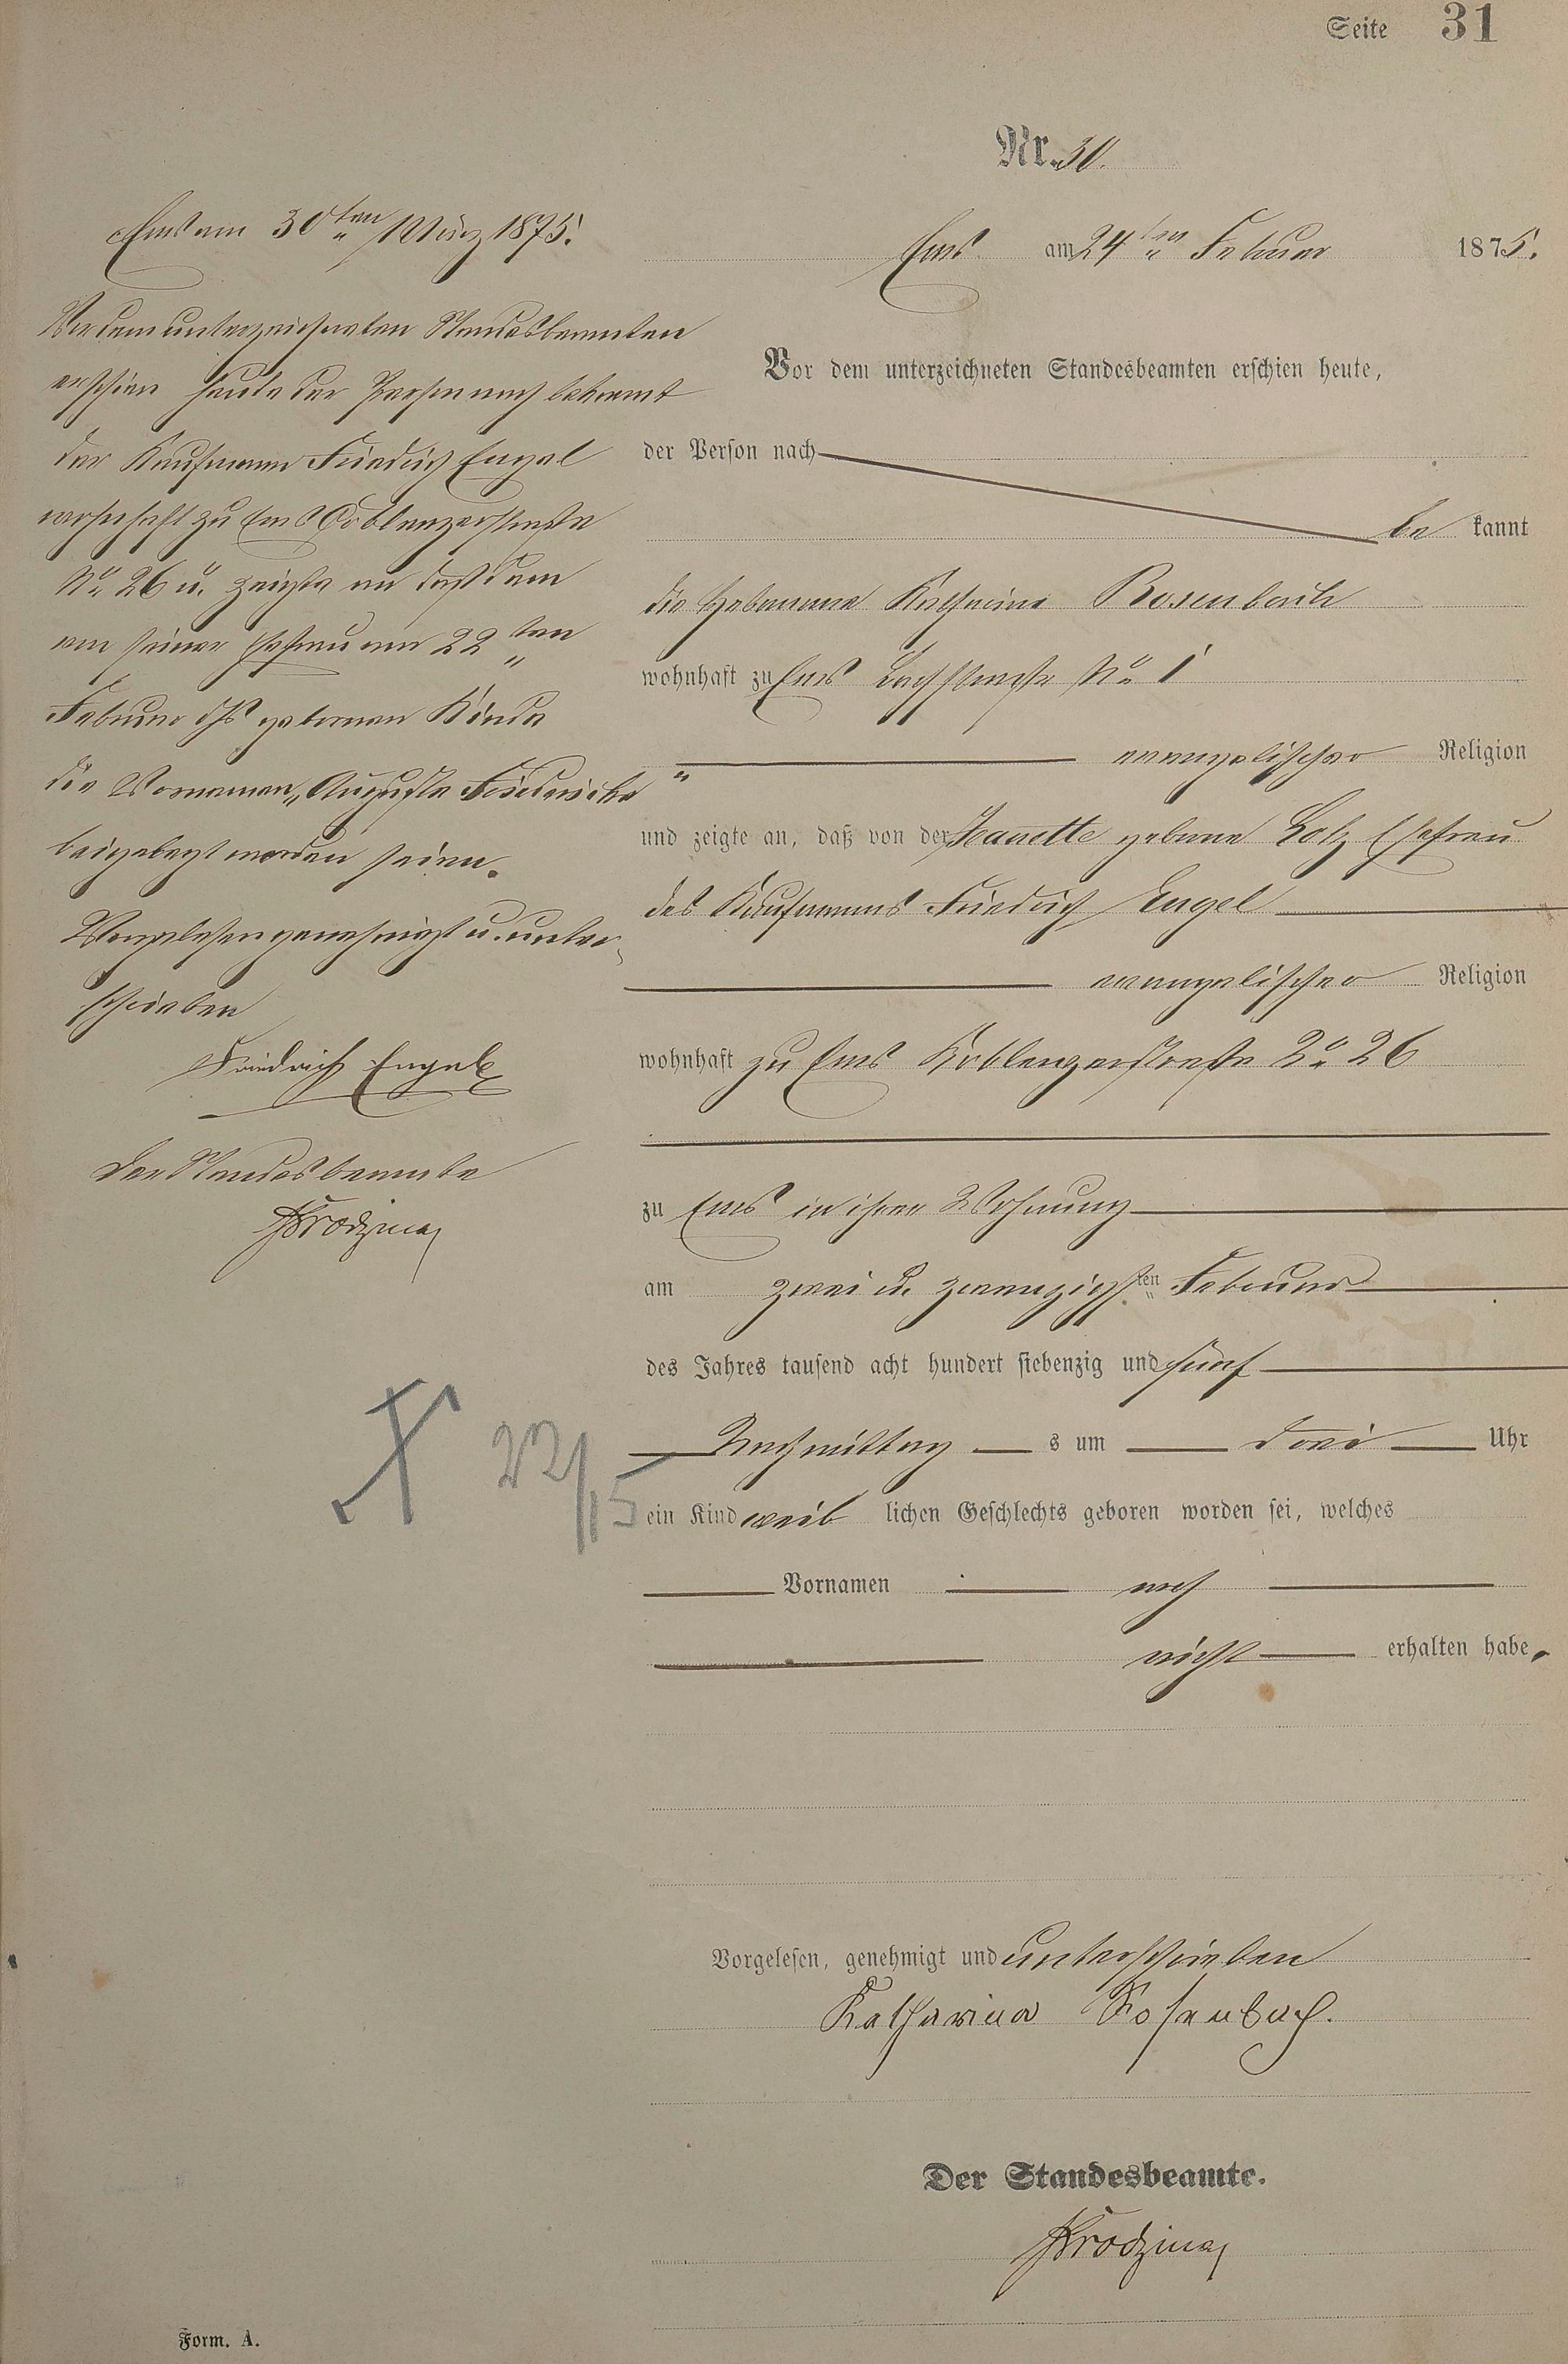 Seite 31
Nr. 30.
Ems am 24ten Februar 1875.
Vor dem unterzeichneten Standesbeamten erschien heute,
der Person nach
be kannt
die Hebamme Katharina Rosenbach
wohnhaft zu Ems Bachstraße No 1
evangelischer Religion
und zeigte an, daß von der Jeanette geborne Lotz Ehefrau
des Kaufmanns Friedrich Engel
evangelischer Religion
wohnhaft zu Ems Koblenzerstraße No 26
zu Ems in ihrer Wohnung
am zwei u. zwanzigsten Februar
des Jahres tausend acht hundert siebenzig und fünf
Nachmittag s um drei Uhr
ein Kind weib lichen Geschlechts geboren worden sei, welches
Vornamen noch
nicht erhalten habe.
Vorgelesen, genehmigt und unterschrieben
Katharina Rosenbach.
Der Standesbeamte.
Ems am 30ten März 1875.
Vor dem unterzeichneten Standesbeamten
erschien heute der Person nach bekannt
der Kaufmann Friedrich Engel
wohnhaft zu Ems Coblenzerstraße
No 26 u. zeigte an daß dem
von seiner Ehefrau am 22ten
Februar ds gebornen Kinde
die Vornamen „Auguste Friedericke"
beigelegt worden seien.
Vorgelesen genehmigt u. unter-
schrieben
Friedrich Engel
Der Standesbeamte
22/15
Form. A.